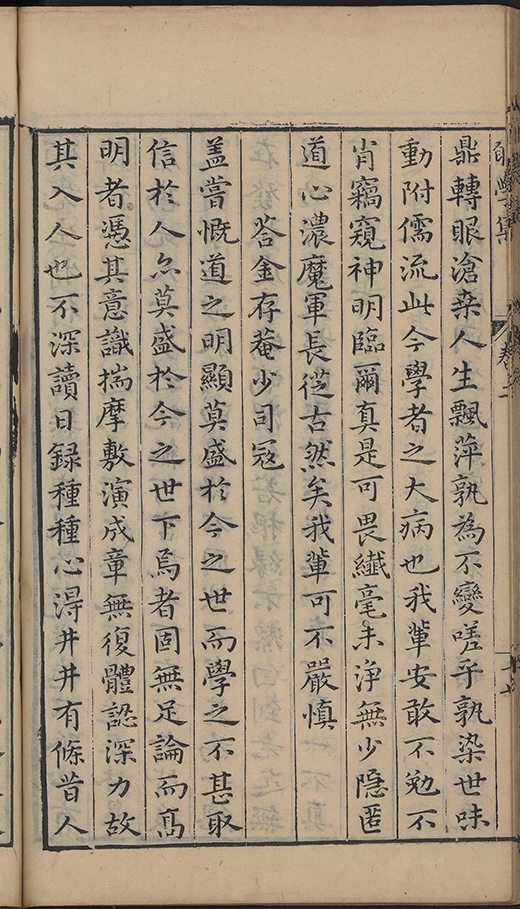 鼎轉眼滄桑人生飄萍孰為不變嗟乎孰染世味
動附儒流此今學者之大病也我輩安敢不勉不
肖竊窺神明臨爾真是可畏纖毫未淨無少隱匿
道心濃魔軍長從古然矣我輩可不嚴慎
荅金存菴少司冦
盖嘗慨道之明顯莫盛於今之世而學之不甚取
信於人亦莫盛於今之世下焉者固無足論而高
明者憑其意識揣摩敷演成章無復體認深力故
其入人也不深讀日録種種心淂井井有條昔人